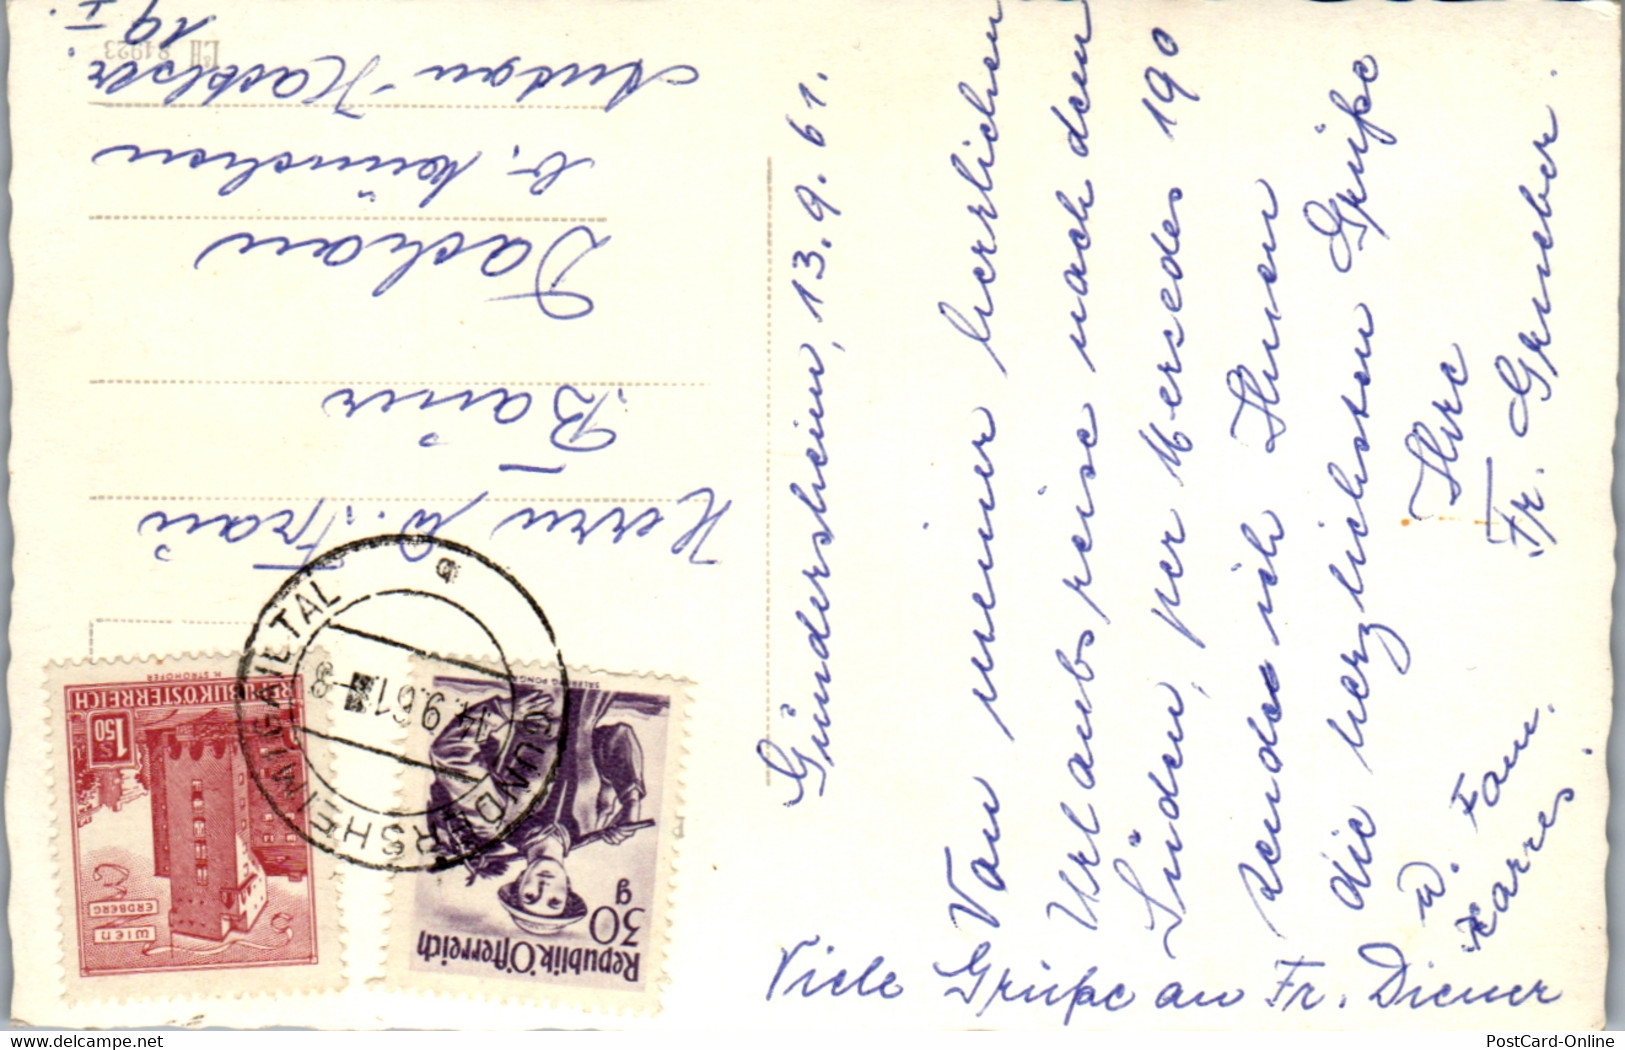 Gundersheim, 13. 9. 61.
Von meiner herrlichen
Urlaubsreise nach dem
Süden, per Mersedes 190
sende ich Ihnen
die herzlichsten Grüße
Ihre
Fr. Gruber.
u. Fam.
Karres.
Viele Grüße an Fr. Diener
Herrn u. Frau
Baier
Dachau
b. München
19
I.
L&H 84923
REPUBLIK ÖSTERREICH
H. STROHOFER
1.50
S
WIEN
ERDBERG
Republik Österreich
30
g
GUNDERSHEIM I GAILTAL
14. 9. 61
-8
PostCard-Online
www.delcampe.net